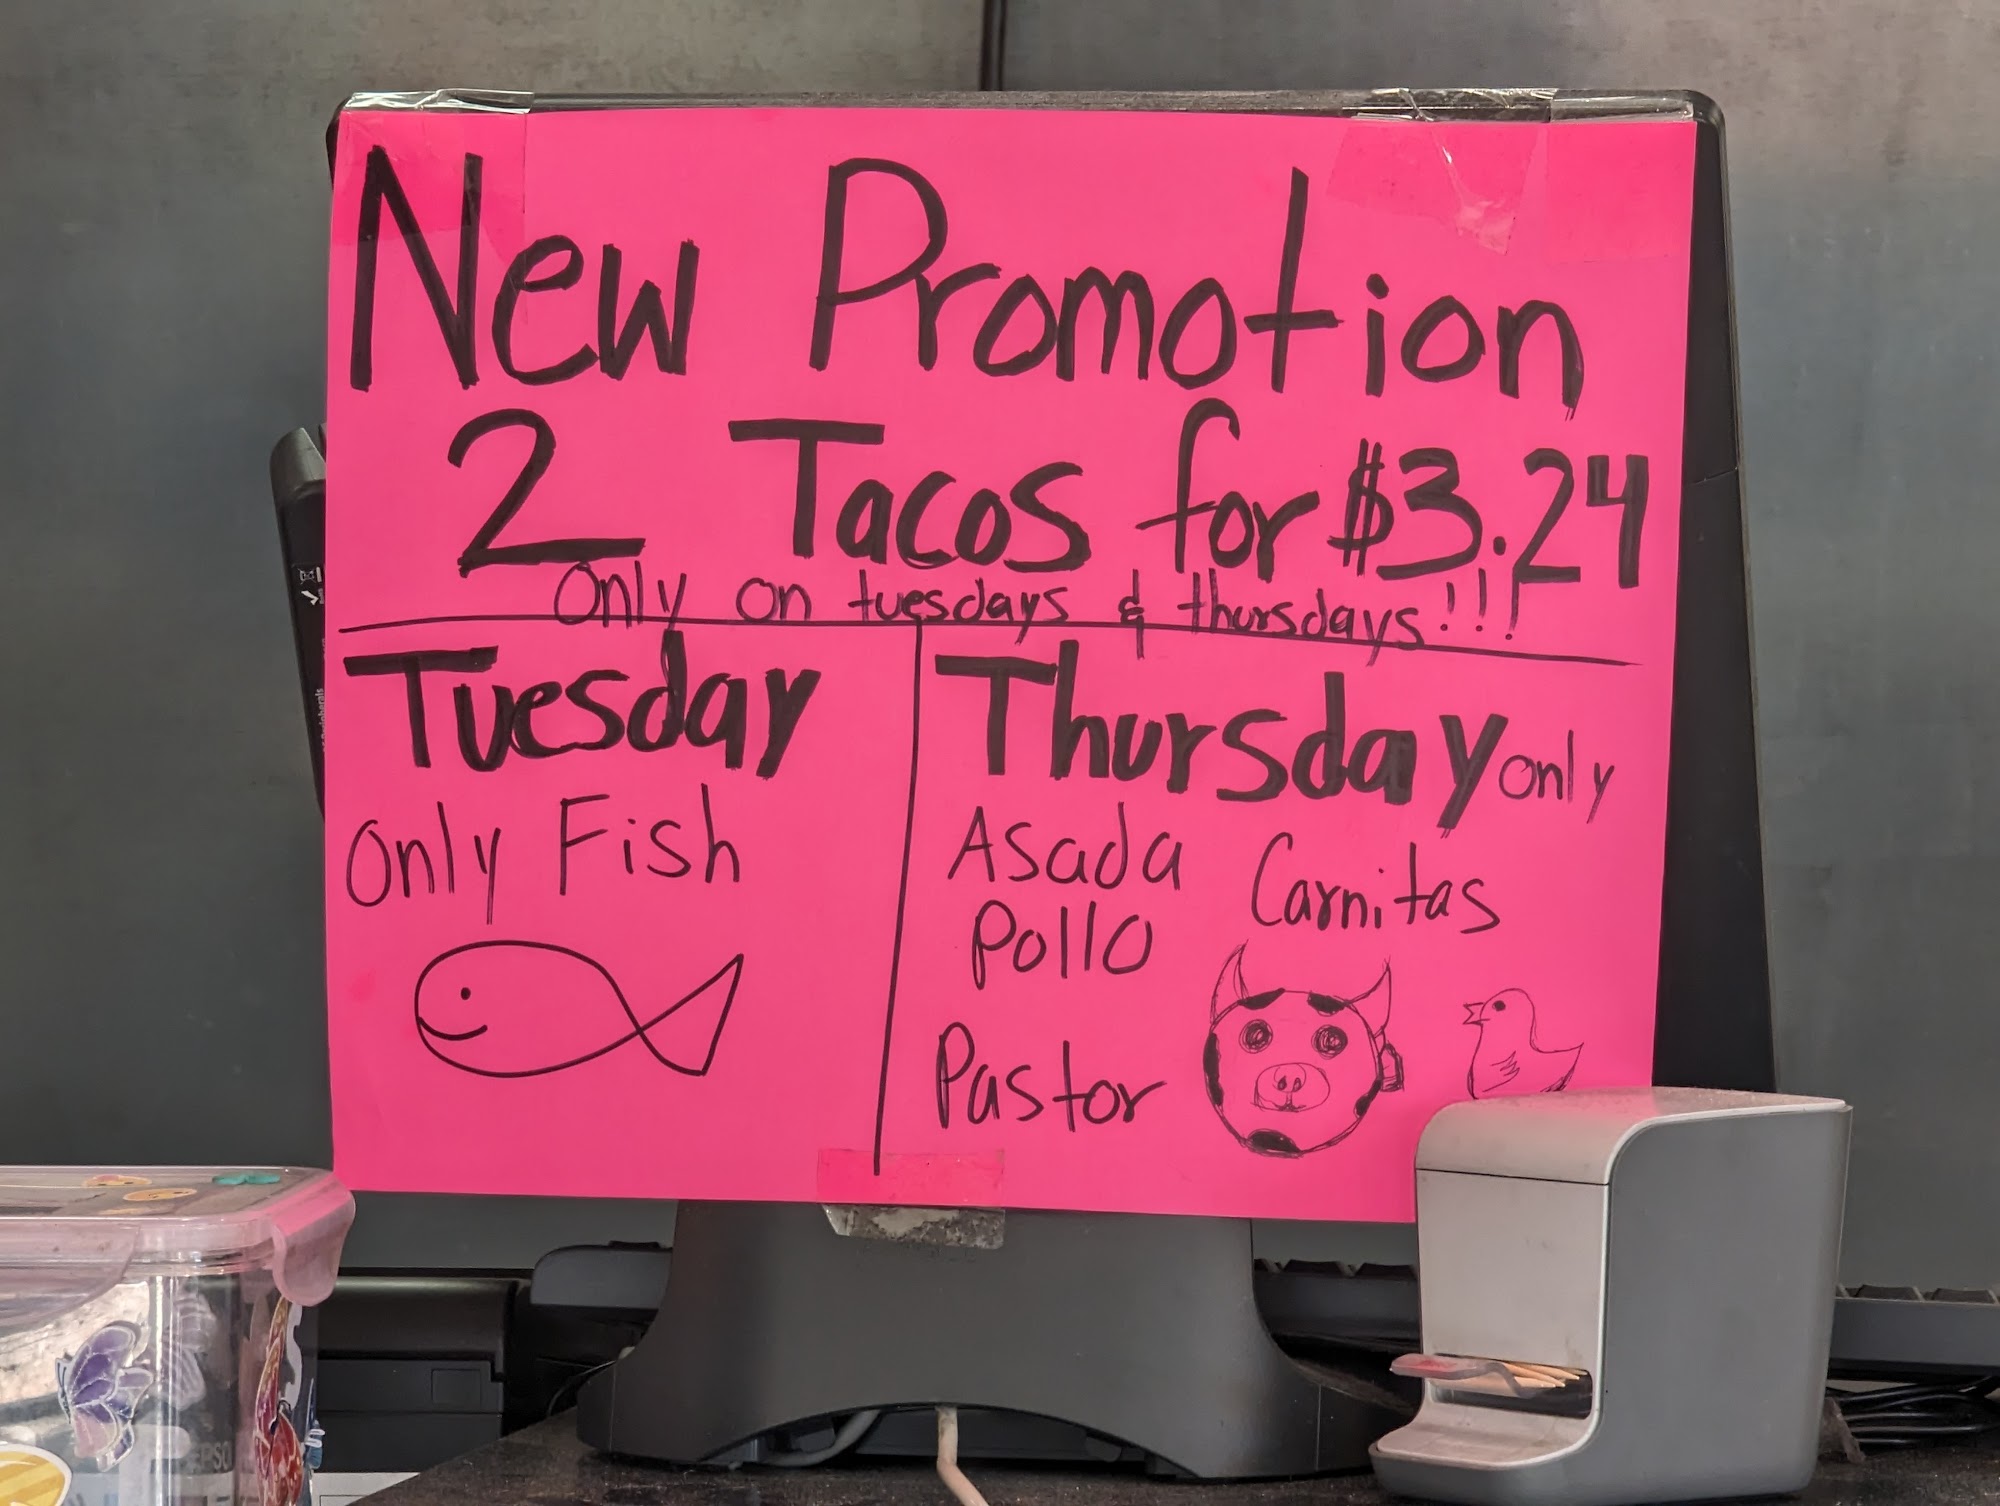 New Promotion
2 Tacos for $3.24
Only on tuesdays & thursdays!!!
Tuesday
Only Fish
Thursday only
Asada Carnitas
Pollo
Pastor
EPSO